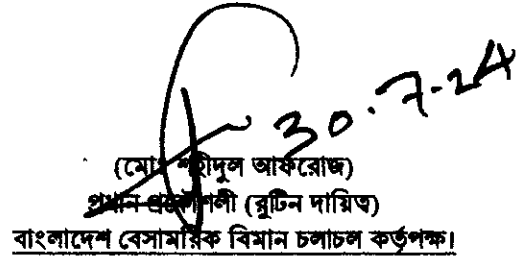 30.7.24
(মোঃ শহীদুল আফরোজ)
প্রধান প্রকৌশলী (রুটিন দায়িত্ব)
বাংলাদেশ বেসামরিক বিমান চলাচল কর্তৃপক্ষ।